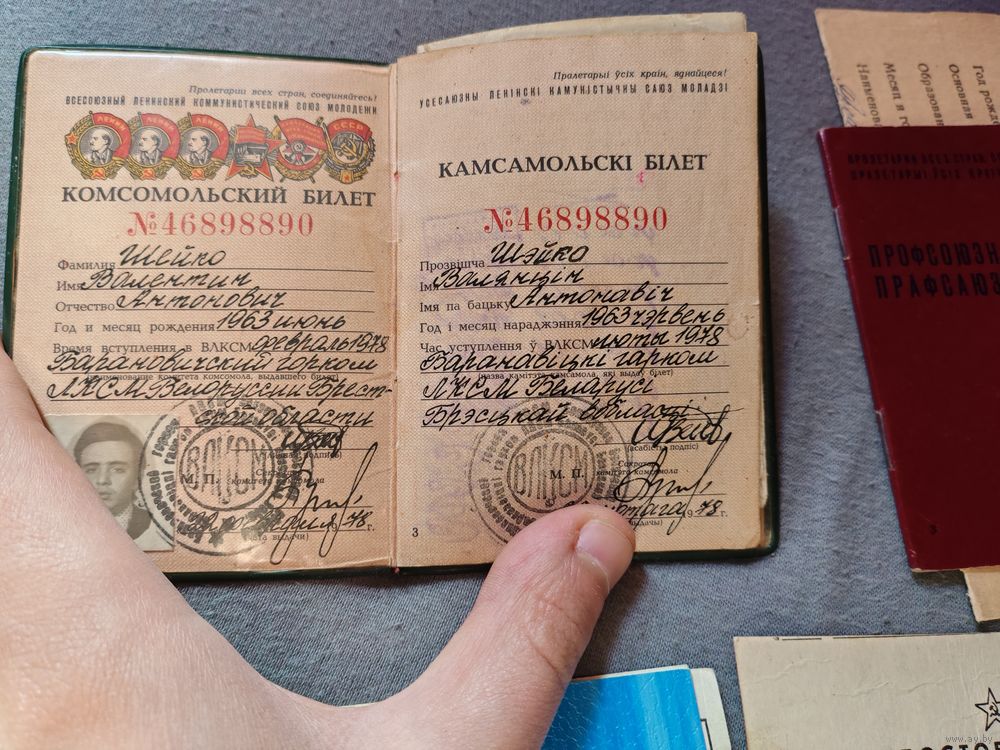 Пролетарии всех стран, соединяйтесь!
ВСЕСОЮЗНЫЙ ЛЕНИНСКИЙ КОММУНИСТИЧЕСКИЙ СОЮЗ МОЛОДЕЖИ
ЛЕНИН ЛЕНИН ЛЕНИН СССР
КОМСОМОЛЬСКИЙ БИЛЕТ
№46898890
Фамилия Шейко
Имя Валентин
Отчество Антонович
Год и месяц рождения 1963 июнь
Время вступления в ВЛКСМ февраль 1978
Барановичский горком
наименование комитета комсомола, выдавшего билет
ЛКСМ Белоруссии Брест-
ской области
(личная подпись)
М. П.
Секретарь
комитета комсомола
ВЛКСМ
1978 г.
(дата выдачи)
Пралетарыі ўсіх краін, яднайцеся!
УСЕСАЮЗНЫ ЛЕНІНСКІ КАМУНІСТЫЧНЫ САЮЗ МОЛАДЗІ
КАМСАМОЛЬСКІ БІЛЕТ
№46898890
Прозвішча Шэйко
Імя Валянцін
Імя па бацьку Антонавіч
Год і месяц нараджэння 1963 чэрвень
Час уступлення ў ВЛКСМ люты 1978
Баранавіцкі гарком
(назва камітэта камсамола, які выдаў білет)
ЛКСМ Беларусі
Брэсцкай вобласці
(асабісты подпіс)
М. П.
Сакратар
камітэта камсамола
ВЛКСМ
лютага 1978 г.
3
Год рожд
Основная
Образован
Месяц и г
Наименова
ПРОЛЕТАРИИ ВСЕХ СТРАН, СО
ПРАЛЕТАРЫІ ЎСІХ КРАІН
ПРОФСОЮЗН
ПРАФСАЮЗ
3
www.ay.by